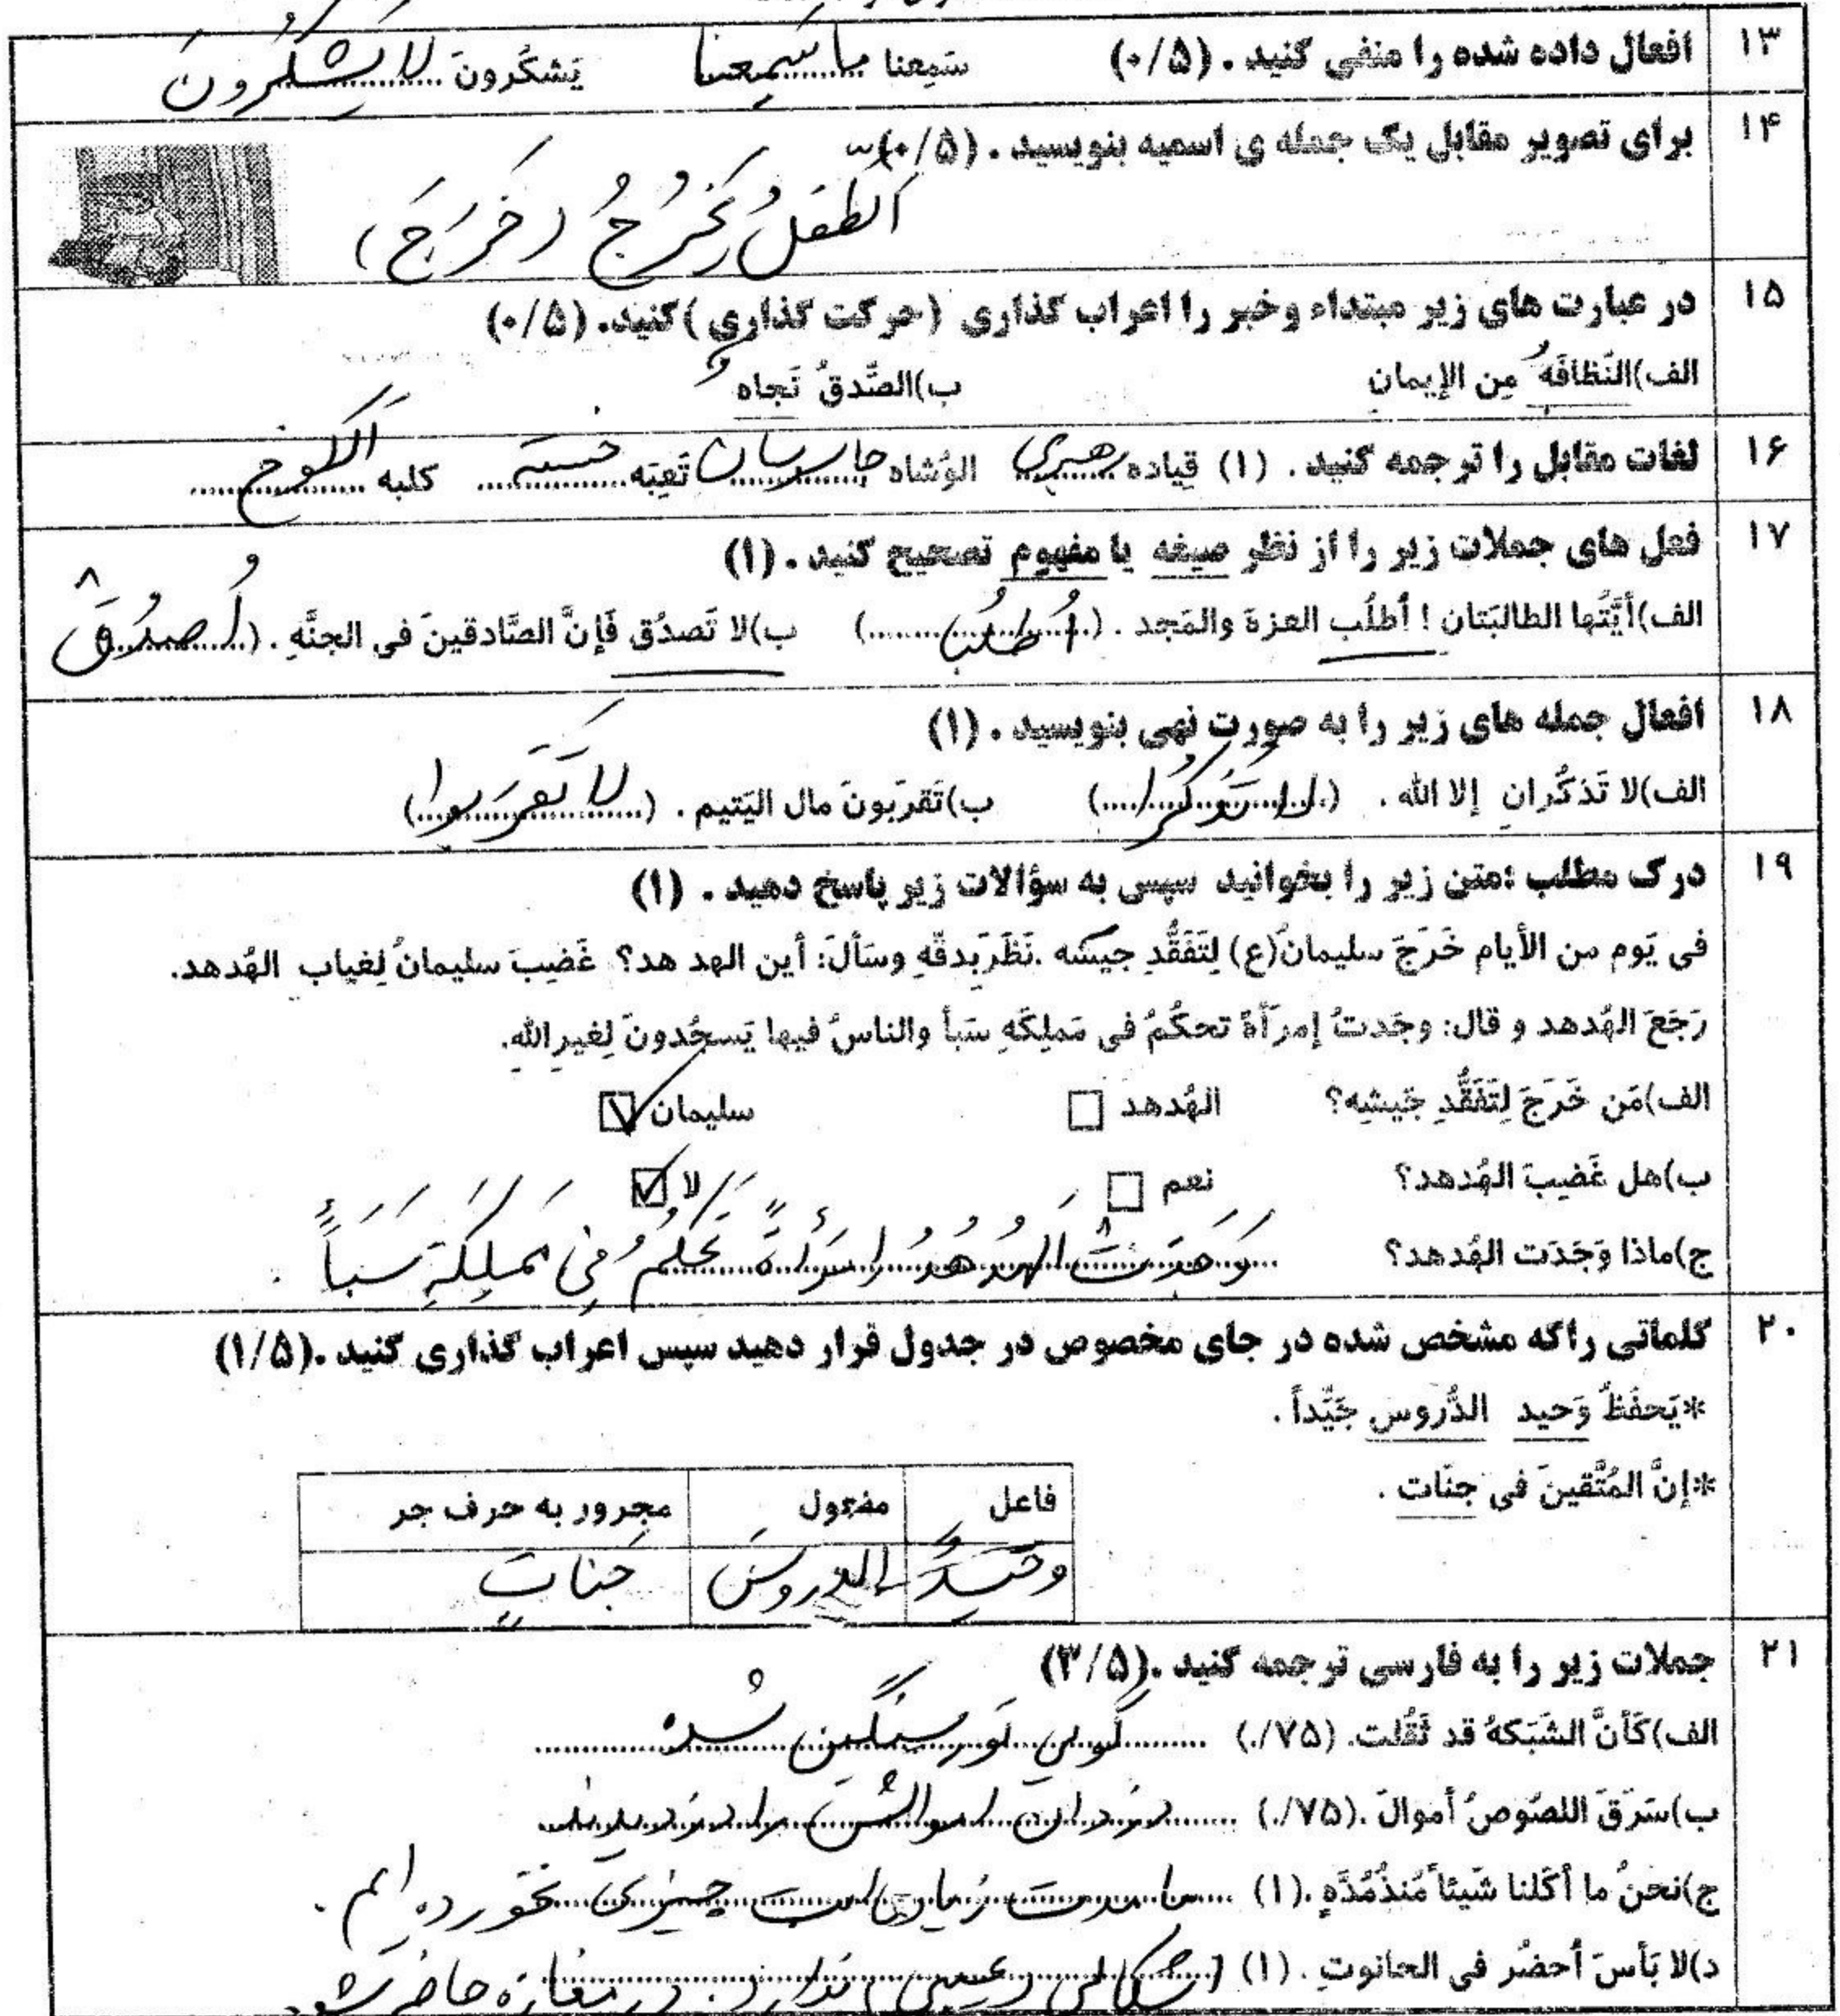 ۱۳ افعال داده شده را منفی کنید . (۰/۵) سَمِعنا ما سَمِعنا یَشکُرونَ لا یَشکُرونَ
۱۴ برای تصویر مقابل یک جمله ی اسمیه بنویسید . (۰/۵)
اَلطِّفلُ یَخرُجُ (خَرَجَ)
۱۵ در عبارت های زیر مبتداء وخبر را اعراب گذاری (حرکت گذاری )کنید. (۰/۵)
الف)النَّظافَهُ مِن الإیمانِ ب)الصِّدقُ نَجاه
۱۶ لغات مقابل را ترجمه کنید . (۱) قِیاده رهبری الوُشاه جاسوسان تَعِبَه خسته کلبه الکوخ
۱۷ فعل های جملات زیر را از نظر صیغه یا مفهوم تصحیح کنید . (۱)
الف)أیَّتُها الطالبَتانِ ! أُطلُب العزة والمَجد . (اُطلُبا) ب)لا تَصدُق فَإنَّ الصَّادقینَ فی الجنَّهِ . (اُصدُق)
۱۸ افعال جمله های زیر را به صورت نهی بنویسید . (۱)
الف)لا تَذکُرانِ إلا الله . (لا تَذکُرا) ب)تَقرَبونَ مال الیَتیم . (لا تَقرَبوا)
۱۹ درک مطلب :متن زیر را بخوانید سپس به سؤالات زیر پاسخ دهید . (۱)
فی یَوم من الأیام خَرَجَ سلیمانُ(ع) لِتَفَقُّدِ جیشه .نَظَرَبِدقّهِ وسَألَ: أین الهد هد؟ غَضِبَ سلیمانُ لِغیاب الهُدهد.
رَجَعَ الهُدهد و قال: وجَدتُ إمرَأةً تحکُمُ فی مَملِکَهِ سَبأ والناسُ فیها یَسجُدونَ لِغیرِاللهِ.
الف)مَن خَرَجَ لِتَفَقُّدِ جَیشِه؟ الهُدهد سلیمان
ب)هل غَضِبَ الهُدهد؟ نعم لا
ج)ماذا وَجَدَت الهُدهد؟ وَجَدَتْ الهُدهُدُ امرَأةً تَحکُمُ فِی مَملِکَةِ سَبَأٍ .
۲۰ کلماتی راکه مشخص شده در جای مخصوص در جدول قرار دهید سپس اعراب گذاری کنید .(۱/۵)
*یَحفَظُ وَحید الدُّروس جَیِّداً .
*إنَّ المُتَّقینَ فی جنّات .
فاعل مفعول مجرور به حرف جر
وحیدٌ الدروسَ جَناتٍ
۲۱ جملات زیر را به فارسی ترجمه کنید .(۳/۵)
الف)کَأنَّ الشَبَکهُ قد ثَقُلَت. (۷۵/.) گویی تور سنگین شده
ب)سَرَقَ اللصُوصُ أموالَ .(۷۵/.) دزدان اموالش را دزدیدند
ج)نحنُ ما أکَلنا شَیئاً مُنذُمُدَّهٍ .(۱) ما مدت زیادی است چیزی نخورده ایم .
د)لا بَأسَ اُحضُر فی الحانوتِ . (۱) اشکالی (عیبی) ندارد . در مغازه حاضر شو